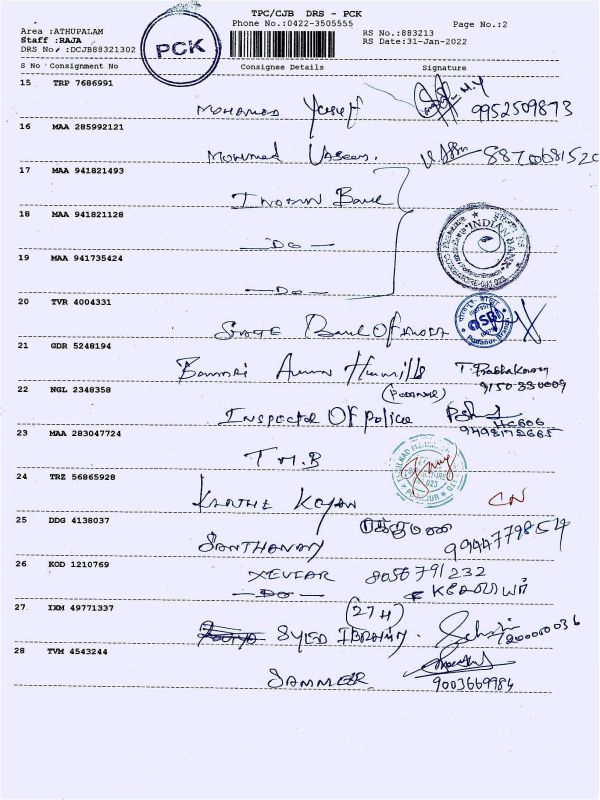 TPC/CJB DRS - PCK
Phone No.:0422-3505555 Page No.:2
Area :ATHUPALAM
Staff :RAJA
DRS No. :DCJB88321302
RS No.:883213
RS Date:31-Jan-2022
PCK
S No Consignment No Consignee Details Signature
15 TRP 7686991
Mohamad Yusuf 9952509873
16 MAA 285992121
Mohmmed
17 MAA 941821493
Indian Bank
18 MAA 941821128
— Do —
INDIAN BANK
19 MAA 941735424
— Do —
20 TVR 4004331
State Bank Of India
SBI
21 GDR 5248194
Bannari Amman T. Prabhakaran
22 NGL 2348358
Inspector Of Police HC606
23 MAA 283047724
T M.B
24 TRZ 56865928
CN
25 DDG 4138037
Santhanam
26 KOD 1210769
Xeviar 8056791232
— Do —
27 IXM 49771337
(27H)
Syied Ibrahim
28 TVM 4543244
Sammeer 9003669984